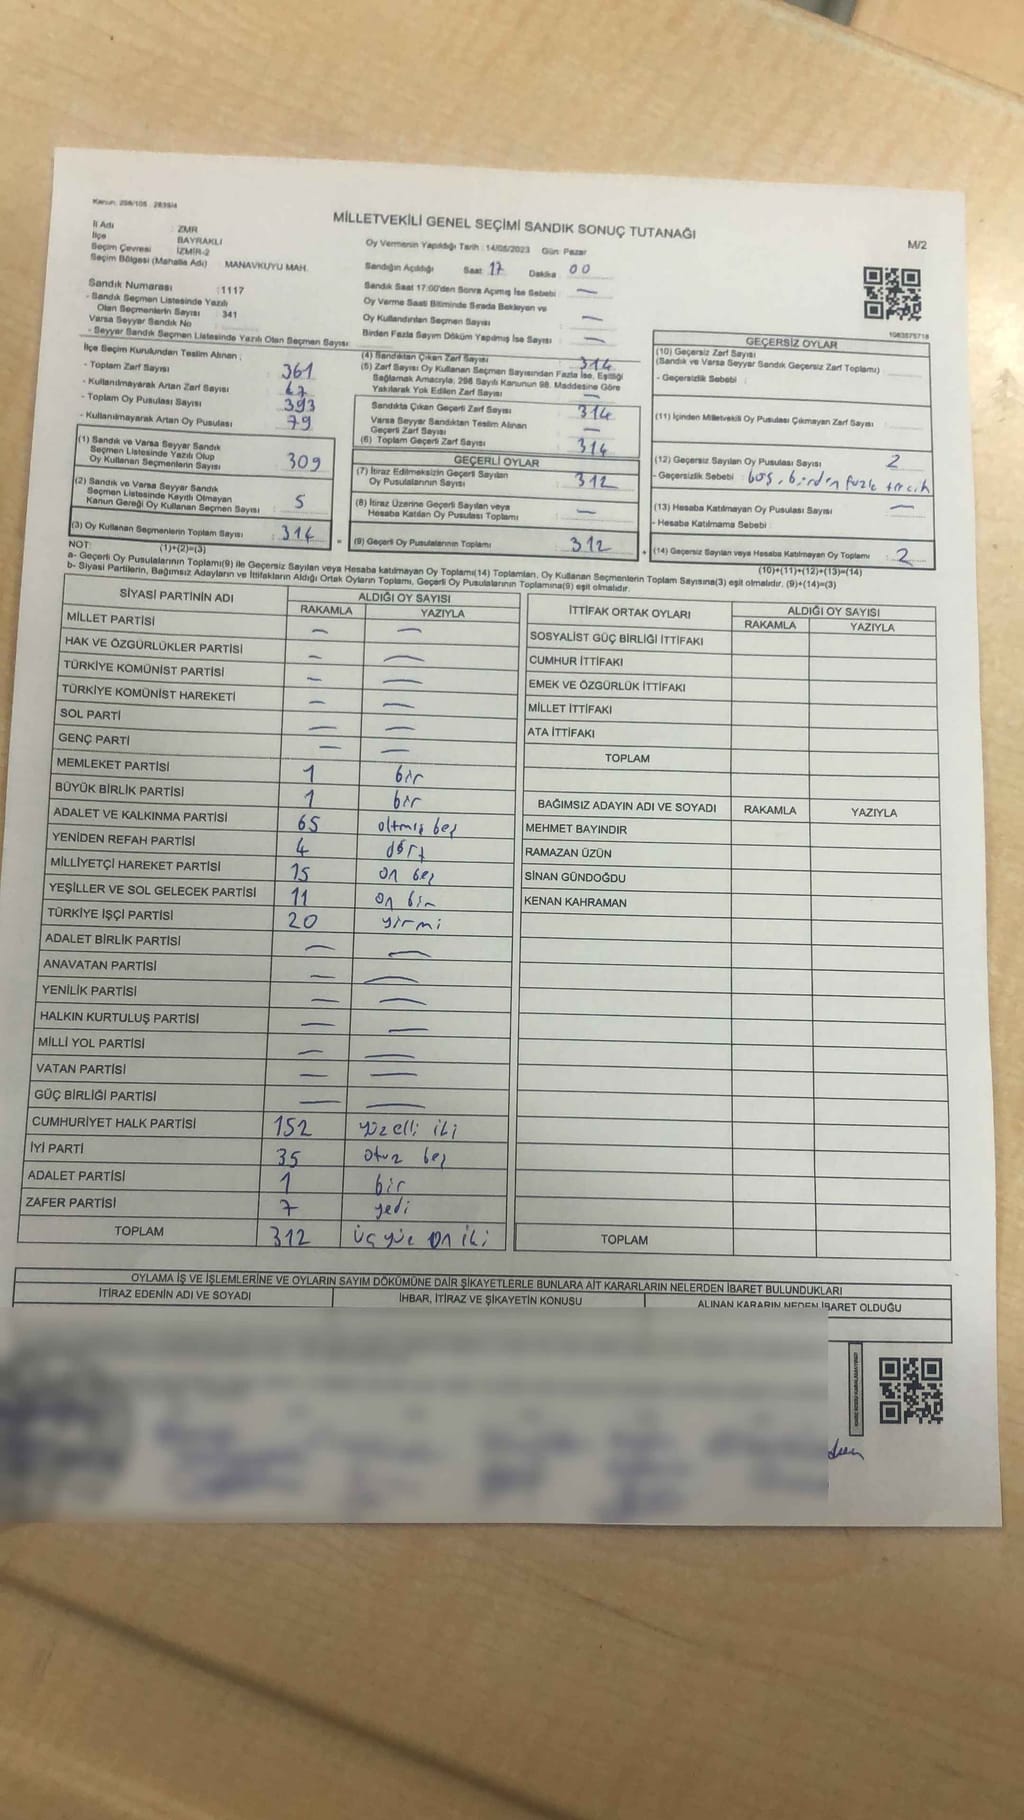 Kanun: 298/105 : 2839/4
MİLLETVEKİLİ GENEL SEÇİMİ SANDIK SONUÇ TUTANAĞI
M/2
İl Adı : ZMR
İlçe BAYRAKLI
Seçim Çevresi İZMİR-2
Seçim Bölgesi (Mahalle Adı) MANAVKUYU MAH.
Oy Vermenin Yapıldığı Tarih : 14/05/2023 Gün: Pazar
Sandığın Açıldığı Saat 17 Dakika 00
Sandık Saat 17:00'den Sonra Açımış İse Sebebi : —
Oy Verme Saati Bitiminde Sırada Bekleyen ve
Oy Kullandırılan Seçmen Sayısı —
Birden Fazla Sayım Döküm Yapılmış İse Sayısı : —
Sandık Numarası : 1117
- Sandık Seçmen Listesinde Yazılı
Olan Seçmenlerin Sayısı : 341
Varsa Seyyar Sandık No
- Seyyar Sandık Seçmen Listesinde Yazılı Olan Seçmen Sayısı
1083575718
İlçe Seçim Kurulundan Teslim Alınan :
- Toplam Zarf Sayısı 361
- Kullanılmayarak Artan Zarf Sayısı
- Toplam Oy Pusulası Sayısı 393
- Kullanılmayarak Artan Oy Pusulası 79
(1) Sandık ve Varsa Seyyar Sandık
Seçmen Listesinde Yazılı Olup
Oy Kullanan Seçmenlerin Sayısı 309
(2) Sandık ve Varsa Seyyar Sandık
Seçmen Listesinde Kayıtlı Olmayan
Kanun Gereği Oy Kullanan Seçmen Sayısı : 5
(3) Oy Kullanan Seçmenlerin Toplam Sayısı : 314
(4) Sandıktan Çıkan Zarf Sayısı 314
(5) Zarf Sayısı Oy Kullanan Seçmen Sayısından Fazla İse, Eşitliği
Sağlamak Amacıyla, 298 Sayılı Kanunun 98. Maddesine Göre
Yakılarak Yok Edilen Zarf Sayısı —
Sandıkta Çıkan Geçerli Zarf Sayısı : 314
Varsa Seyyar Sandıktan Teslim Alınan
Geçerli Zarf Sayısı —
(6) Toplam Geçerli Zarf Sayısı : 314
GEÇERLİ OYLAR
(7) İtiraz Edilmeksizin Geçerli Sayılan
Oy Pusulalarının Sayısı : 312
(8) İtiraz Üzerine Geçerli Sayılan veya
Hesaba Katılan Oy Pusulası Toplamı : —
(9) Geçerli Oy Pusulalarının Toplamı 312
GEÇERSİZ OYLAR
(10) Geçersiz Zarf Sayısı
(Sandık ve Varsa Seyyar Sandık Geçersiz Zarf Toplamı)
- Geçersizlik Sebebi :
(11) İçinden Milletvekili Oy Pusulası Çıkmayan Zarf Sayısı
(12) Geçersiz Sayılan Oy Pusulası Sayısı 2
- Geçersizlik Sebebi : boş, birden fazla tercih
(13) Hesaba Katılmayan Oy Pusulası Sayısı —
- Hesaba Katılmama Sebebi
(14) Geçersiz Sayılan veya Hesaba Katılmayan Oy Toplamı : 2
NOT: (1)+(2)=(3)
(10)+(11)+(12)+(13)=(14)
a- Geçerli Oy Pusulalarının Toplamı(9) ile Geçersiz Sayılan veya Hesaba katılmayan Oy Toplamı(14) Toplamları, Oy Kullanan Seçmenlerin Toplam Sayısına(3) eşit olmalıdır. (9)+(14)=(3)
b- Siyasi Partilerin, Bağımsız Adayların ve İttifakların Aldığı Ortak Oyların Toplamı, Geçerli Oy Pusulalarının Toplamına(9) eşit olmalıdır.
SİYASİ PARTİNİN ADI ALDIĞI OY SAYISI
RAKAMLA YAZIYLA
MİLLET PARTİSİ — —
HAK VE ÖZGÜRLÜKLER PARTİSİ — —
TÜRKİYE KOMÜNİST PARTİSİ — —
TÜRKİYE KOMÜNİST HAREKETİ — —
SOL PARTİ — —
GENÇ PARTİ — —
MEMLEKET PARTİSİ 1 bir
BÜYÜK BİRLİK PARTİSİ 1 bir
ADALET VE KALKINMA PARTİSİ 65 altmış beş
YENİDEN REFAH PARTİSİ 4 dört
MİLLİYETÇİ HAREKET PARTİSİ 15 on beş
YEŞİLLER VE SOL GELECEK PARTİSİ 11 on bir
TÜRKİYE İŞÇİ PARTİSİ 20 yirmi
ADALET BİRLİK PARTİSİ — —
ANAVATAN PARTİSİ — —
YENİLİK PARTİSİ — —
HALKIN KURTULUŞ PARTİSİ — —
MİLLİ YOL PARTİSİ — —
VATAN PARTİSİ — —
GÜÇ BİRLİĞİ PARTİSİ — —
CUMHURİYET HALK PARTİSİ 152 yüzelli iki
İYİ PARTİ 35 otuz beş
ADALET PARTİSİ 1 bir
ZAFER PARTİSİ 7 yedi
TOPLAM 312 üçyüz on iki
İTTİFAK ORTAK OYLARI ALDIĞI OY SAYISI
RAKAMLA YAZIYLA
SOSYALİST GÜÇ BİRLİĞİ İTTİFAKI
CUMHUR İTTİFAKI
EMEK VE ÖZGÜRLÜK İTTİFAKI
MİLLET İTTİFAKI
ATA İTTİFAKI
TOPLAM
BAĞIMSIZ ADAYIN ADI VE SOYADI RAKAMLA YAZIYLA
MEHMET BAYINDIR
RAMAZAN ÜZÜN
SİNAN GÜNDOĞDU
KENAN KAHRAMAN
TOPLAM
OYLAMA İŞ VE İŞLEMLERİNE VE OYLARIN SAYIM DÖKÜMÜNE DAİR ŞİKAYETLERLE BUNLARA AİT KARARLARIN NELERDEN İBARET BULUNDUKLARI
İTİRAZ EDENİN ADI VE SOYADI İHBAR, İTİRAZ VE ŞİKAYETİN KONUSU ALINAN KARARIN NEDEN İBARET OLDUĞU